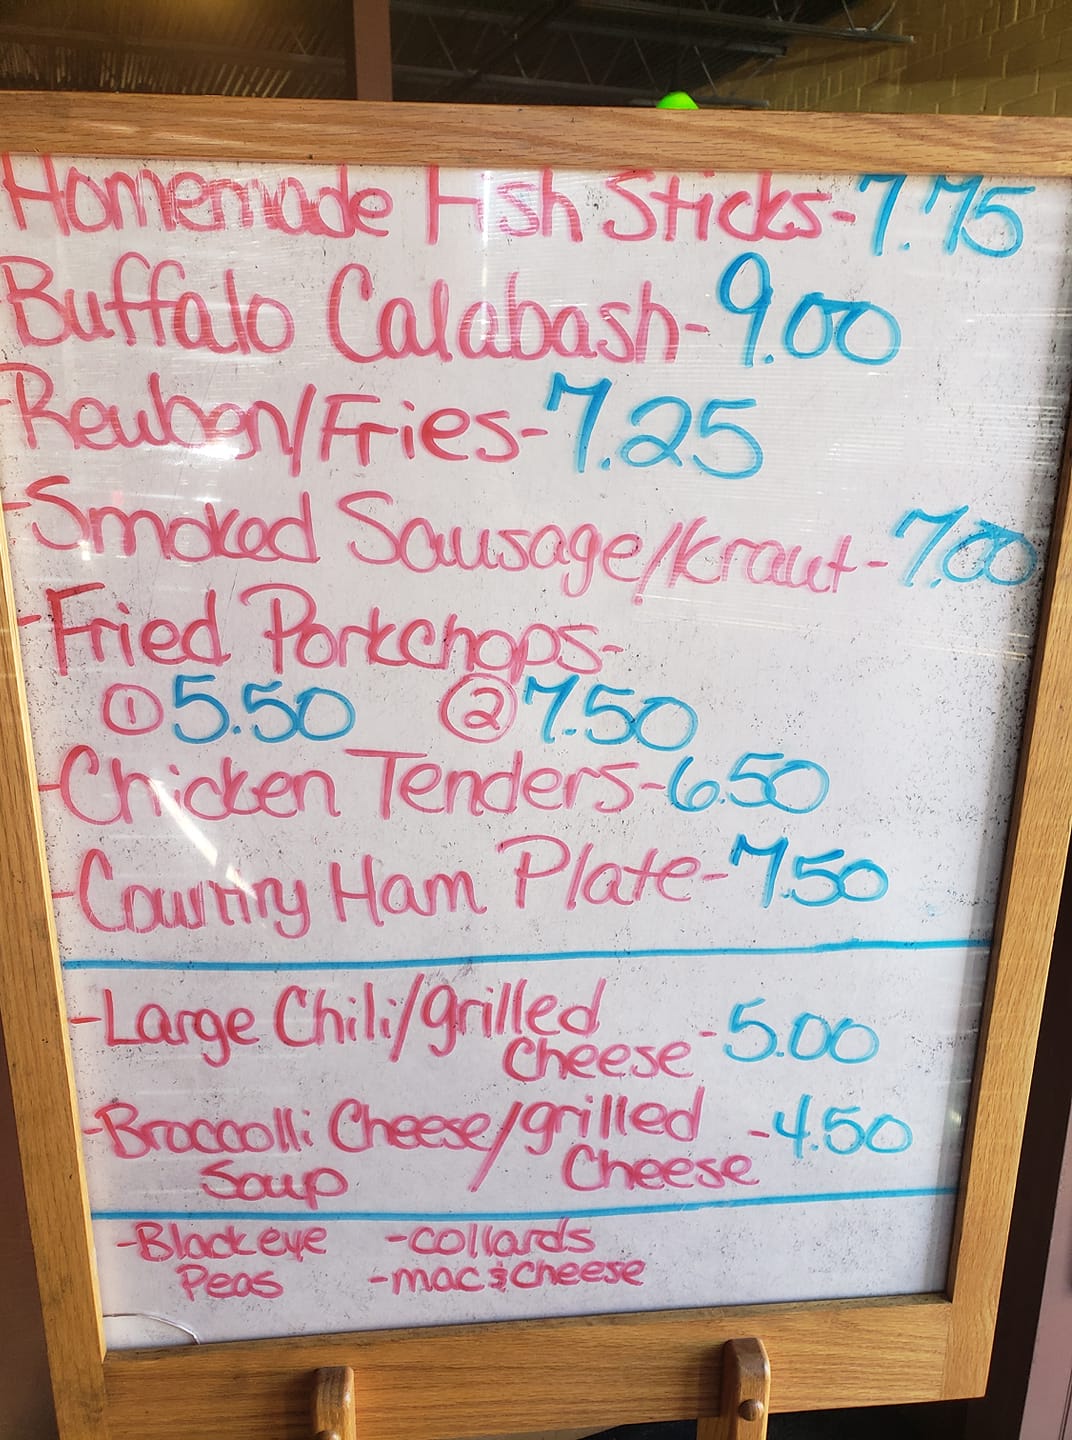 Homemade Fish Sticks-7.75
Buffalo Calabash-9.00
-Reuben/Fries-7.25
-Smoked Sausage/Kraut-7.00
-Fried Porkchops-
① 5.50 ② 7.50
-Chicken Tenders-6.50
-Country Ham Plate-7.50
-Large Chili/grilled
Cheese -5.00
-Broccolli Cheese/grilled -4.50
Soup Cheese
-Blackeye -collards
Peas -mac & cheese